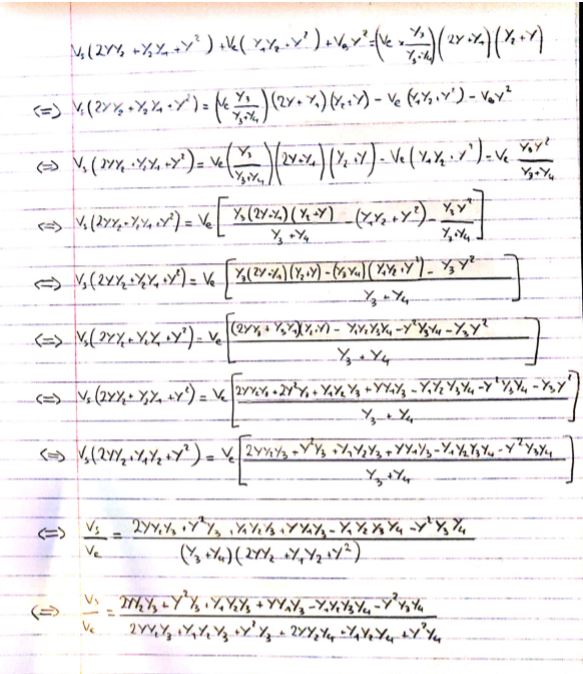 Vs(2YY2 + Y2Y1 + Y²) + Ve(Y1Y2 + Y²) + VeY² = (Ve × Y3/(Y3+Y4))(2Y+Y1)(Y2+Y)
<=> Vs(2YY2+Y2Y1+Y²) = (Ve Y3/(Y3+Y4))(2Y+Y1)(Y2+Y) - Ve(Y1Y2+Y²) - VeY²
<=> Vs(2YY2+Y2Y1+Y²) = Ve(Y3/(Y3+Y4))(2Y+Y1)(Y2+Y) - Ve(Y1Y2+Y²) - Ve Y3Y²/(Y3+Y4)
<=> Vs(2YY2+Y2Y1+Y²) = Ve[Y3(2Y+Y1)(Y2+Y)/(Y3+Y4) - (Y1Y2+Y²) - Y3Y²/(Y3+Y4)]
<=> Vs(2YY2+Y2Y1+Y²) = Ve[(Y3(2Y+Y1)(Y2+Y) - (Y3Y4)(Y1Y2+Y²) - Y3Y²)/(Y3+Y4)]
<=> Vs(2YY2+Y2Y1+Y²) = Ve[((2YY3+Y3Y1)(Y2+Y) - Y1Y2Y3Y4 - Y²Y3Y4 - Y3Y²)/(Y3+Y4)]
<=> Vs(2YY2+Y2Y1+Y²) = Ve[(2YY2Y3+2Y²Y3+Y1Y2Y3+YY1Y3-Y1Y2Y3Y4-Y²Y3Y4-Y3Y²)/(Y3+Y4)]
<=> Vs(2YY2+Y1Y2+Y²) = Ve[(2YY2Y3+Y²Y3+Y1Y2Y3+YY1Y3-Y1Y2Y3Y4-Y²Y3Y4)/(Y3+Y4)]
<=> Vs/Ve = (2YY2Y3+Y²Y3+Y1Y2Y3+YY1Y3-Y1Y2Y3Y4-Y²Y3Y4)/((Y3+Y4)(2YY2+Y1Y2+Y²))
<=> Vs/Ve = (2YY2Y3+Y²Y3+Y1Y2Y3+YY1Y3-Y1Y2Y3Y4-Y²Y3Y4)/(2YY2Y3+Y1Y2Y3+Y²Y3+2YY2Y4+Y1Y2Y4+Y²Y4)